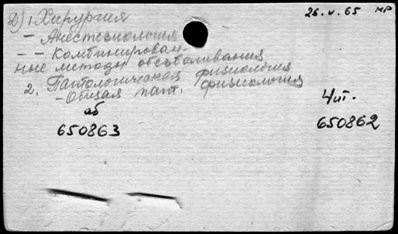 Д) 1. Хирургия
26.V.65 МР
- Анестезиология
- - Комбинирован-
ные методы обезболивания
2. Патологическая физиология
- Общая пат. физиология
аб
4ит.
650863
650862